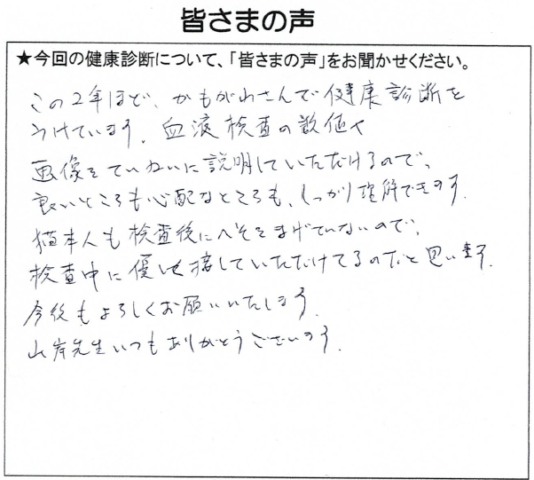 皆さまの声
★今回の健康診断について、「皆さまの声」をお聞かせください。
この2年ほど、かもがわさんで健康診断を
うけています。血液検査の数値や
画像をていねいに説明していただけるので、
良いところも心配なところも、しっかり理解できます。
猫本人も検査後にへそをまげていないので、
検査中に優しく接していただけてるのだと思います。
今後もよろしくお願いいたします。
山岸先生いつもありがとうございます。